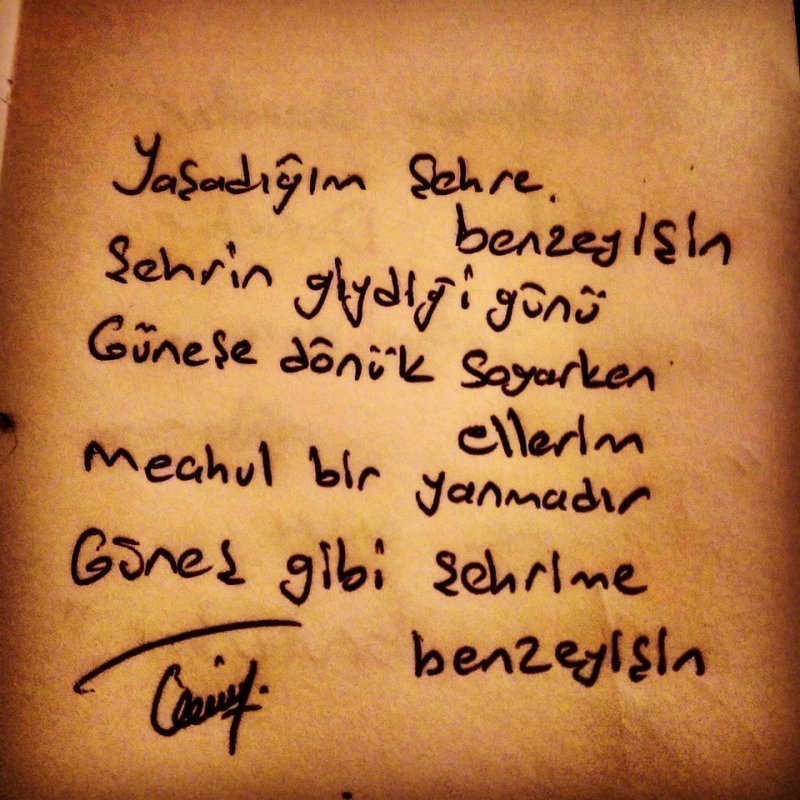 Yaşadığım şehre.
benzeyişin
Şehrin giydiği günü
Güneşe dönük soyarken
ellerim
Meçhul bir yanmadır
Güneş gibi şehrime
benzeyişin